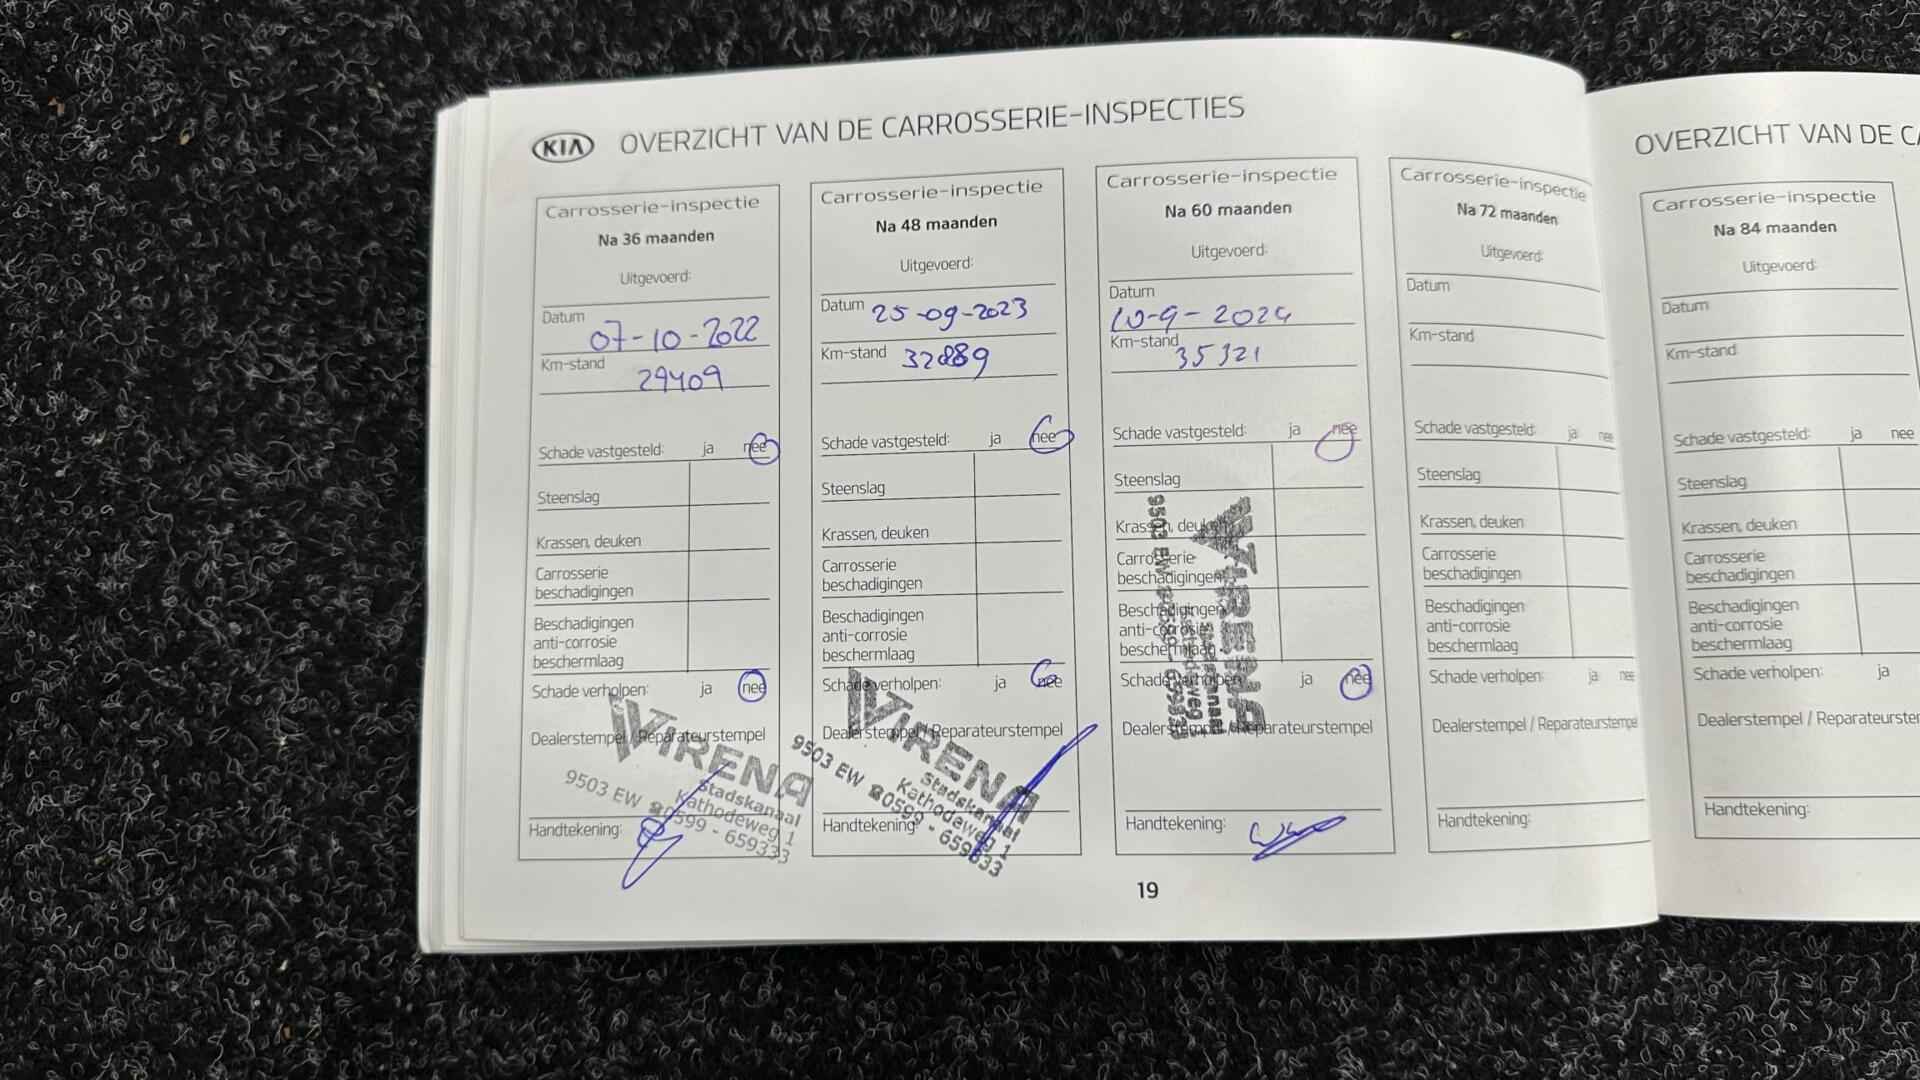 KIA OVERZICHT VAN DE CARROSSERIE-INSPECTIES
Carrosserie-inspectie
Na 36 maanden
Uitgevoerd:
Datum 07-10-2022
Km-stand 29409
Schade vastgesteld: ja nee
Steenslag
Krassen, deuken
Carrosserie
beschadigingen
Beschadigingen
anti-corrosie
beschermlaag
Schade verholpen: ja nee
Dealerstempel / Reparateurstempel
VIRENA
Stadskanaal
Kathodeweg 1
9503 EW ☎0599 - 659333
Handtekening:
Carrosserie-inspectie
Na 48 maanden
Uitgevoerd:
Datum 25-09-2023
Km-stand 32889
Schade vastgesteld: ja nee
Steenslag
Krassen, deuken
Carrosserie
beschadigingen
Beschadigingen
anti-corrosie
beschermlaag
Schade verholpen: ja nee
Dealerstempel / Reparateurstempel
VIRENA
Stadskanaal
Kathodeweg 1
9503 EW ☎0599 - 659333
Handtekening:
Carrosserie-inspectie
Na 60 maanden
Uitgevoerd:
Datum
10-9-2024
Km-stand 35321
Schade vastgesteld: ja nee
Steenslag
Krassen, deuken
Carrosserie
beschadigingen
Beschadigingen
anti-corrosie
beschermlaag
Schade verholpen: ja nee
Dealerstempel / Reparateurstempel
VIRENA
Stadskanaal
9503 EW
Handtekening:
Carrosserie-inspectie
Na 72 maanden
Uitgevoerd:
Datum
Km-stand
Schade vastgesteld: ja nee
Steenslag
Krassen, deuken
Carrosserie
beschadigingen
Beschadigingen
anti-corrosie
beschermlaag
Schade verholpen: ja nee
Dealerstempel / Reparateurstempel
Handtekening:
19
OVERZICHT VAN DE CA
Carrosserie-inspectie
Na 84 maanden
Uitgevoerd:
Datum
Km-stand
Schade vastgesteld: ja nee
Steenslag
Krassen, deuken
Carrosserie
beschadigingen
Beschadigingen
anti-corrosie
beschermlaag
Schade verholpen: ja
Dealerstempel / Reparateurster
Handtekening: